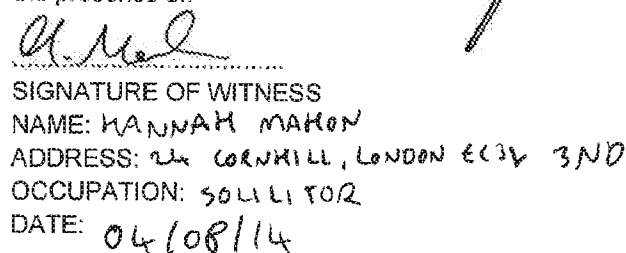 the presence of:
SIGNATURE OF WITNESS
NAME: HANNAH MAHON
ADDRESS: 24 CORNHILL, LONDON EC3V 3ND
OCCUPATION: SOLICITOR
DATE: 04/08/14